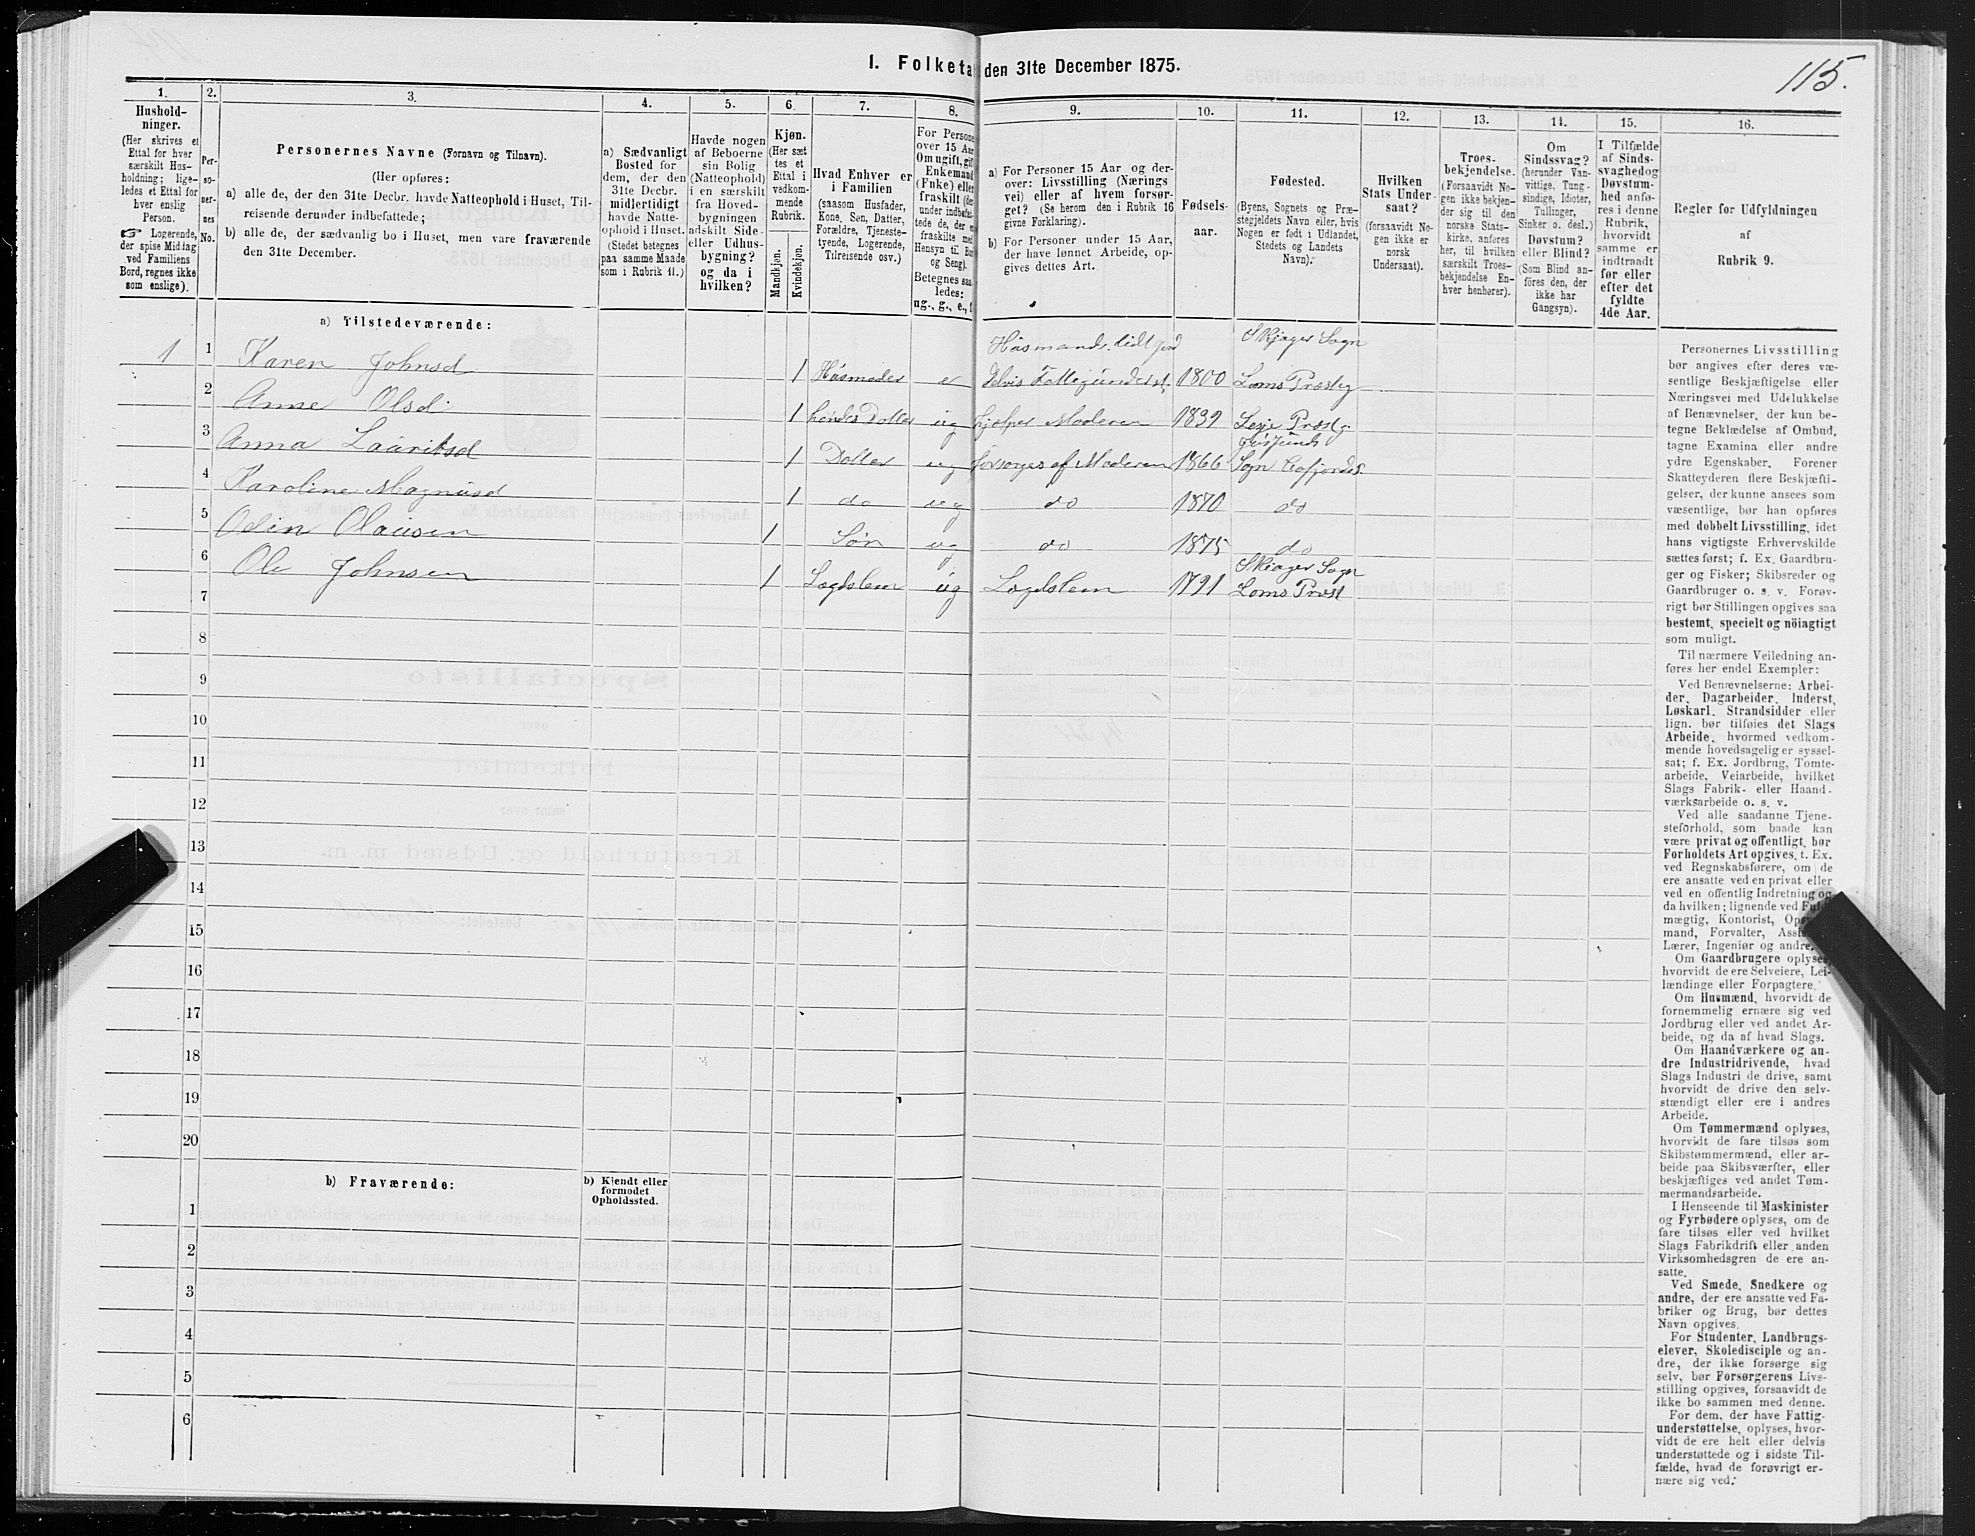 115.
I. Folketa den 31te December 1875.
1. 2. 3. 4. 5. 6. 7. 8. 9. 10. 11. 12. 13. 14. 15. 16.
Hushold-
ninger.
(Her skrives et
Ettal for hver
særskilt Hus-
holdning; lige-
ledes et Ettal for
hver enslig
Person.
☞ Logerende,
der spise Middag
ved Familiens
Bord, regnes ikke
som enslige).
Per-
so-
ner-
nes
No.
Personernes Navne (Fornavn og Tilnavn).
(Her opføres:
a) alle de, der den 31te Decbr. havde Natteophold i Huset, Til-
reisende derunder indbefattede;
b) alle de, der sædvanlig bo i Huset, men vare fraværende
den 31te December.
a) Sædvanligt
Bosted for
dem, der den
31te Decbr.
midlertidigt
havde Natte-
ophold i Huset.
(Stedet betegnes
paa samme Maade
som i Rubrik 11.)
Havde nogen
af Beboerne
sin Bolig
(Natteophold)
i en særskilt
fra Hoved-
bygningen
adskilt Side-
eller Udhus-
bygning?
og da i
hvilken?
Kjøn.
(Her sæt
tes et
Ettal i
vedkom-
mende
Rubrik.
Mandkjøn.
Kvindekjøn.
Hvad Enhver er
i Familien
(saasom Husfader,
Kone, Søn, Datter,
Forældre, Tjeneste-
tyende, Logerende,
Tilreisende osv.)
For Persone
over 15 Aar
Om ugift, gif
Enkemand
(Enke) elle
fraskilt (de
under indbefat-
tede de, der e
fraskilte med
Hensyn til Bo
og Seng).
Betegnes saa
ledes:
ug., g., e., f.
a) For Personer 15 Aar og der-
over: Livsstilling (Nærings
vei) eller af hvem forsør-
get? (Se herom den i Rubrik 16
givne Forklaring).
b) For Personer under 15 Aar,
der have lønnet Arbeide, op-
gives dettes Art.
Fødsels-
aar.
Fødested.
(Byens, Sognets og Præ-
stegjeldets Navn eller, hvis
Nogen er født i Udlandet,
Stedets og Landets
Navn).
Hvilken
Stats Under-
saat?
(forsaavidt No-
gen ikke er
norsk
Undersaat).
Troes-
bekjendelse.
(Forsaavidt No-
gen ikke bekjen-
der sig til den
norske Stats-
kirke, anføres
her, til hvilken
særskilt Troes-
bekjendelse En-
hver henhører).
Om
Sindssvag?
(herunder Van-
vittige, Tung-
sindige, Idioter,
Tullinger,
Sinker o. desl.)
Døvstum?
eller Blind?
(Som Blind an-
føres den, der
ikke har
Gangsyn).
I Tilfælde
af Sinds-
svaghed og
Døvstum-
hed anfø-
res i denne
Rubrik,
hvorvidt
samme er
indtraadt
før eller
efter det
fyldte
4de Aar.
Regler for Udfyldningen
af
Rubrik 9.
a) Tilstedeværende:
1 1 Karen Johnsd 1 Husmoder e Husmands. lidt Jord Delvis Fattigunderst. 1800 Skjager Sogn Loms Præstg
2 Anne Olsd. 1 hendes Datter ug hjelper Moderen 1839 Lesje Præstg.
3 Anna Lauritsd 1 Datter ug forsørges af Moderen 1866 Sogn
4 Karoline Magnusd 1 do ug do 1870 do
5 Odin Olausen 1 Søn ug do 1875 do
6 Ole Johnsen 1 Lægdslem ug Lægdslem 1791 Skiager Sogn Loms Præst
7
8
9
10
11
12
13
14
15
16
17
18
19
20
b) Fraværende:
b) Kjendt eller
formodet
Opholdssted.
1
2
3
4
5
6
Personernes Livsstilling
bør angives efter deres væ-
sentlige Beskjæftigelse eller
Næringsvei med Udelukkelse
af Benævnelser, der kun be-
tegne Beklædelse af Ombud,
tagne Examina eller andre
ydre Egenskaber. Forener
Skatteyderen flere Beskjæfti-
gelser, der kunne ansees som
væsentlige, bør han opføres
med dobbelt Livsstilling, idet
hans vigtigste Erhvervskilde
sættes først; f. Ex. Gaardbru-
ger og Fisker; Skibsreder og
Gaardbruger o. s. v. Forøv-
rigt bør Stillingen opgives saa
bestemt, specielt og nöiagtigt
som muligt.
Til nærmere Veiledning an-
føres her endel Exempler:
Ved Benævnelserne: Arbei-
der, Dagarbeider, Inderst,
Løskarl, Strandsidder eller
lign. bør tilføies det Slags
Arbeide, hvormed vedkom-
mende hovedsagelig er syssel-
sat; f. Ex. Jordbrug, Tomte-
arbeide, Veiarbeide, hvilket
Slags Fabrik- eller Haand-
værksarbeide o. s. v.
Ved alle saadanne Tjene-
steforhold, som baade kan
være privat og offentligt, bør
Forholdets Art opgives, t. Ex.
ved Regnskabsførere, om de
ere ansatte ved en privat eller
ved en offentlig Indretning og
da hvilken; lignende ved Fuld-
mægtig, Kontorist, Opsyns-
mand, Forvalter, Assi
Lærer, Ingeniør og andre.
Om Gaardbrugere oplyses,
hvorvidt de ere Selveiere, Lei-
lændinge eller Forpagtere.
Om Husmænd, hvorvidt de
fornemmelig ernære sig ved
Jordbrug eller ved andet Ar-
beide, og da af hvad Slags.
Om Haandværkere og an-
dre Industridrivende, hvad
Slags Industri de drive, samt
hvorvidt de drive den selv-
stændigt eller ere i andres
Arbeide.
Om Tømmermænd oplyses,
hvorvidt de fare tilsøs som
Skibstømmermænd, eller ar-
beide paa Skibsværfter, eller
beskjæftiges ved andet Tøm-
mermandsarbeide.
I Henseende til Maskinister
og Fyrbødere oplyses, om de
fare tilsøs eller ved hvilket
Slags Fabrikdrift eller anden
Virksomhedsgren de ere an-
satte.
Ved Smede, Snedkere og
andre, der ere ansatte ved Fa-
briker og Brug, bør dettes
Navn opgives.
For Studenter, Landbrugs-
elever, Skoledisciple og an-
dre, der ikke forsørge sig
selv, bør Forsørgerens Livs-
stilling opgives, forsaavidt de
ikke bo sammen med denne.
For dem, der have Fattig-
understøttelse, oplyses, hvor-
vidt de ere helt eller delvis
understøttede og i sidste Til-
fælde, hvad de forøvrigt er-
nære sig ved.